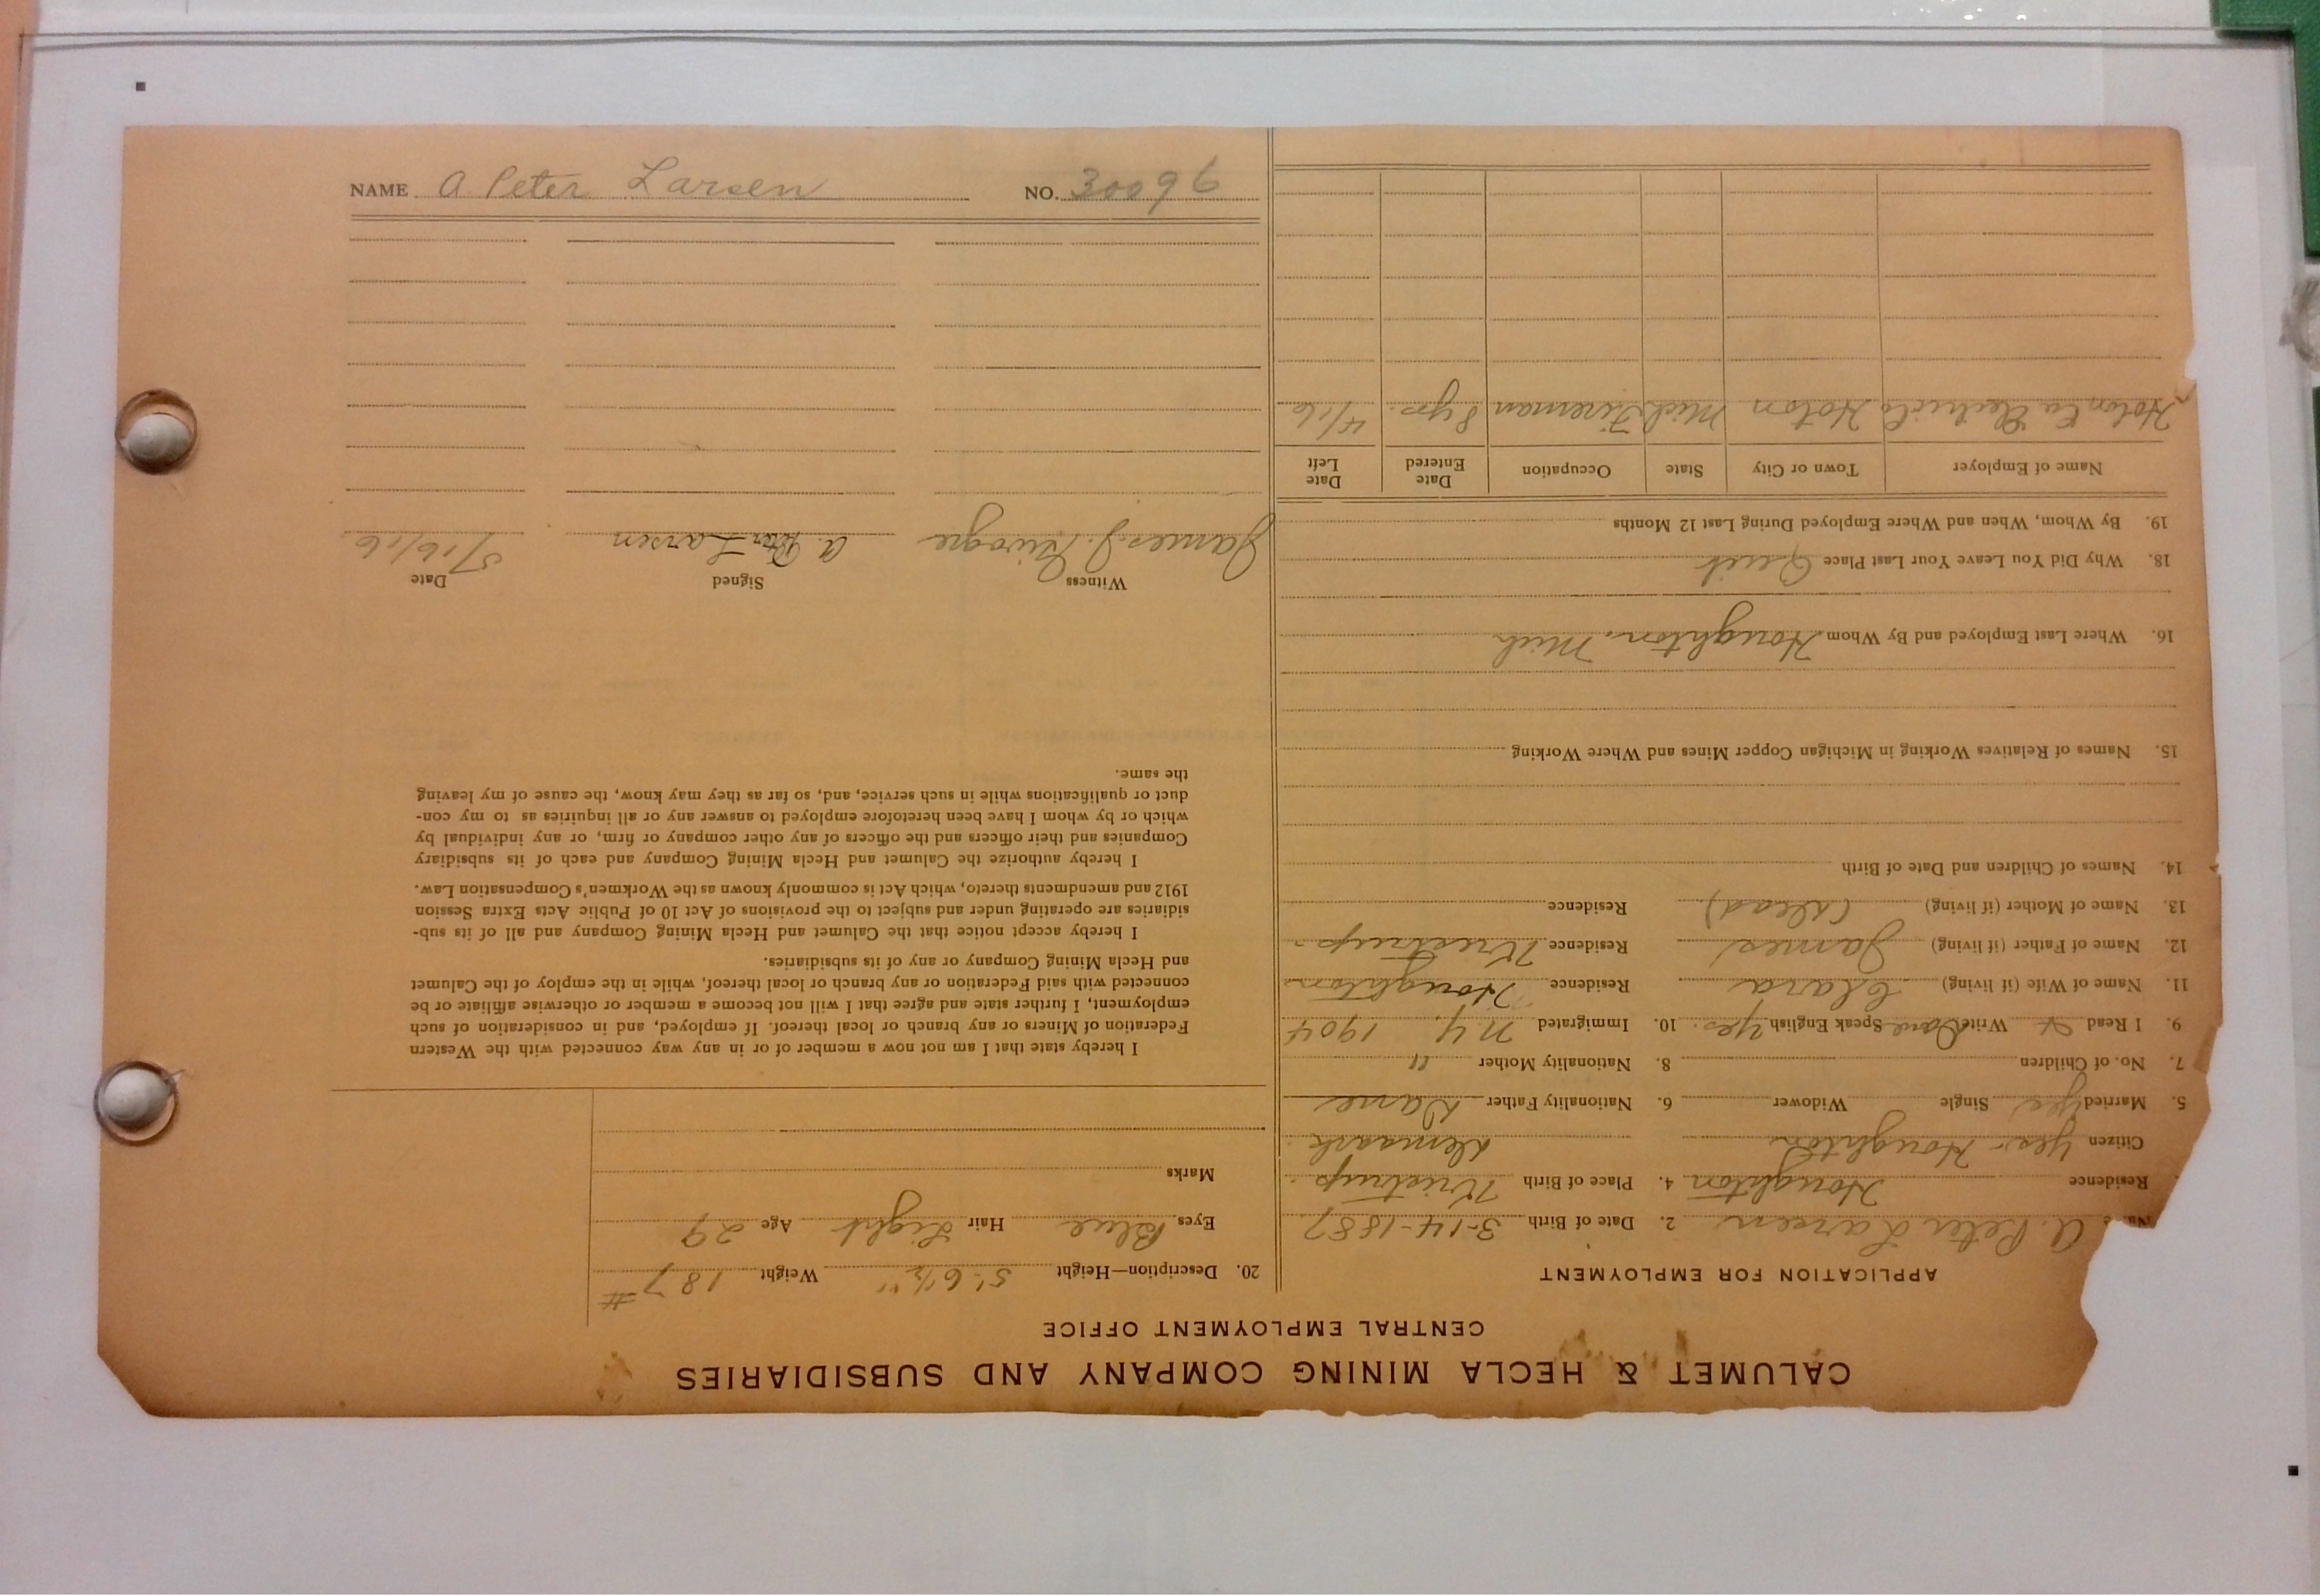 CALUMET & HECLA MINING COMPANY AND SUBSIDIARIES
CENTRAL EMPLOYMENT OFFICE
APPLICATION FOR EMPLOYMENT
A. Peter Larsen 2. Date of Birth 3-14-1887
Residence Houghton 4. Place of Birth
Citizen Yes Houghton Denmark
5. Married Yes Single Widower 6. Nationality Father Dane
7. No. of Children 8. Nationality Mother "
9. I Read Write Dane Speak English Yes. 10. Immigrated N.Y. 1904
11. Name of Wife (if living) Clara Residence Houghton
12. Name of Father (if living) James Residence
13. Name of Mother (if living) (dead) Residence
14. Names of Children and Date of Birth
15. Names of Relatives Working in Michigan Copper Mines and Where Working
16. Where Last Employed and By Whom Houghton, Mich
18. Why Did You Leave Your Last Place Quit
19. By Whom, When and Where Employed During Last 12 Months
Name of Employer Town or City State Occupation Date Entered Date Left
Hoton Co Electric Hoton Mich Fireman 8 yrs. 4/16
20. Description—Height 5' 6½" Weight 187#
Eyes Blue Hair Light Age 29
Marks
I hereby state that I am not now a member of or in any way connected with the Western
Federation of Miners or any branch or local thereof. If employed, and in consideration of such
employment, I further state and agree that I will not become a member or otherwise affiliate or be
connected with said Federation or any branch or local thereof, while in the employ of the Calumet
and Hecla Mining Company or any of its subsidiaries.
I hereby accept notice that the Calumet and Hecla Mining Company and all of its sub-
sidiaries are operating under and subject to the provisions of Act 10 of Public Acts Extra Session
1912 and amendments thereto, which Act is commonly known as the Workmen's Compensation Law.
I hereby authorize the Calumet and Hecla Mining Company and each of its subsidiary
Companies and their officers and the officers of any other company or firm, or any individual by
which or by whom I have been heretofore employed to answer any or all inquiries as to my con-
duct or qualifications while in such service, and, so far as they may know, the cause of my leaving
the same.
Witness Signed Date
James J. A. Peter Larsen 5/16/16
NAME A Peter Larsen NO. 30096